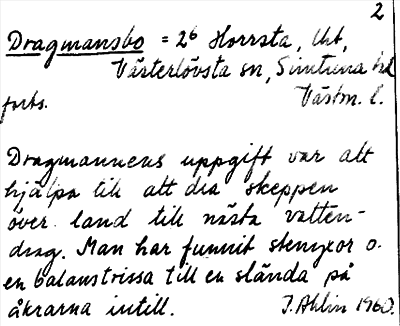 2
Dragmansbo = 2⁶ Horrsta, Ut,
Västerlövsta sn, Simtuna hd
forts. Västm. l.
Dragmannens uppgift var att
hjälpa till att dra skeppen
över land till nästa vatten-
drag. Man har funnit stenyxor o.
en balanstrissa till en slända på
åkrarna intill. J. Ahlin 1960.